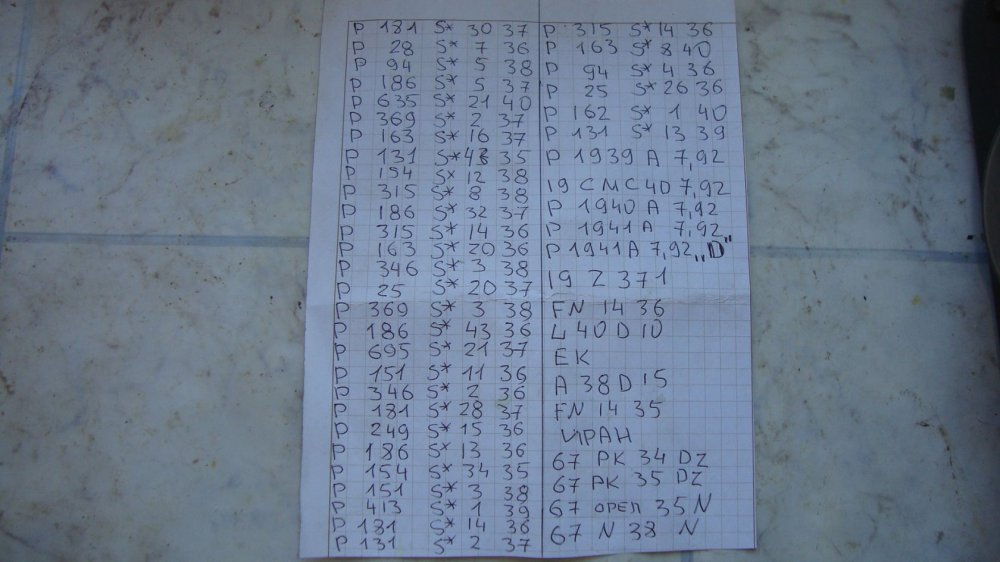 P 181 S* 30 37
P 28 S* 7 36
P 94 S* 5 38
P 186 S* 5 37
P 635 S* 21 40
P 369 S* 2 37
P 163 S* 16 37
P 131 S* 35
P 154 S* 12 38
P 315 S* 8 38
P 186 S* 32 37
P 315 S* 14 36
P 163 S* 20 36
P 346 S* 3 38
P 25 S* 20 37
P 369 S* 3 38
P 186 S* 43 36
P 695 S* 21 37
P 151 S* 11 36
P 346 S* 2 36
P 181 S* 28 37
P 249 S* 15 36
P 186 S* 13 36
P 154 S* 34 35
P 151 S* 3 38
P 413 S* 1 39
P 181 S* 14 36
P 131 S* 2 37
P 315 S* 14 36
P 163 S* 8 40
P 94 S* 4 36
P 25 S* 26 36
P 162 S* 1 40
P 131 S* 13 39
P 1939 A 7,92
19 CMC 40 7,92
P 1940 A 7,92
P 1941 A 7,92
P 1941 A 7,92 „D"
19 Z 371
FN 14 36
L 40 D 10
EK
A 38 D 15
FN 14 35
ИРАН
67 PK 34 DZ
67 PK 35 DZ
67 орел 35 N
67 N 38 N